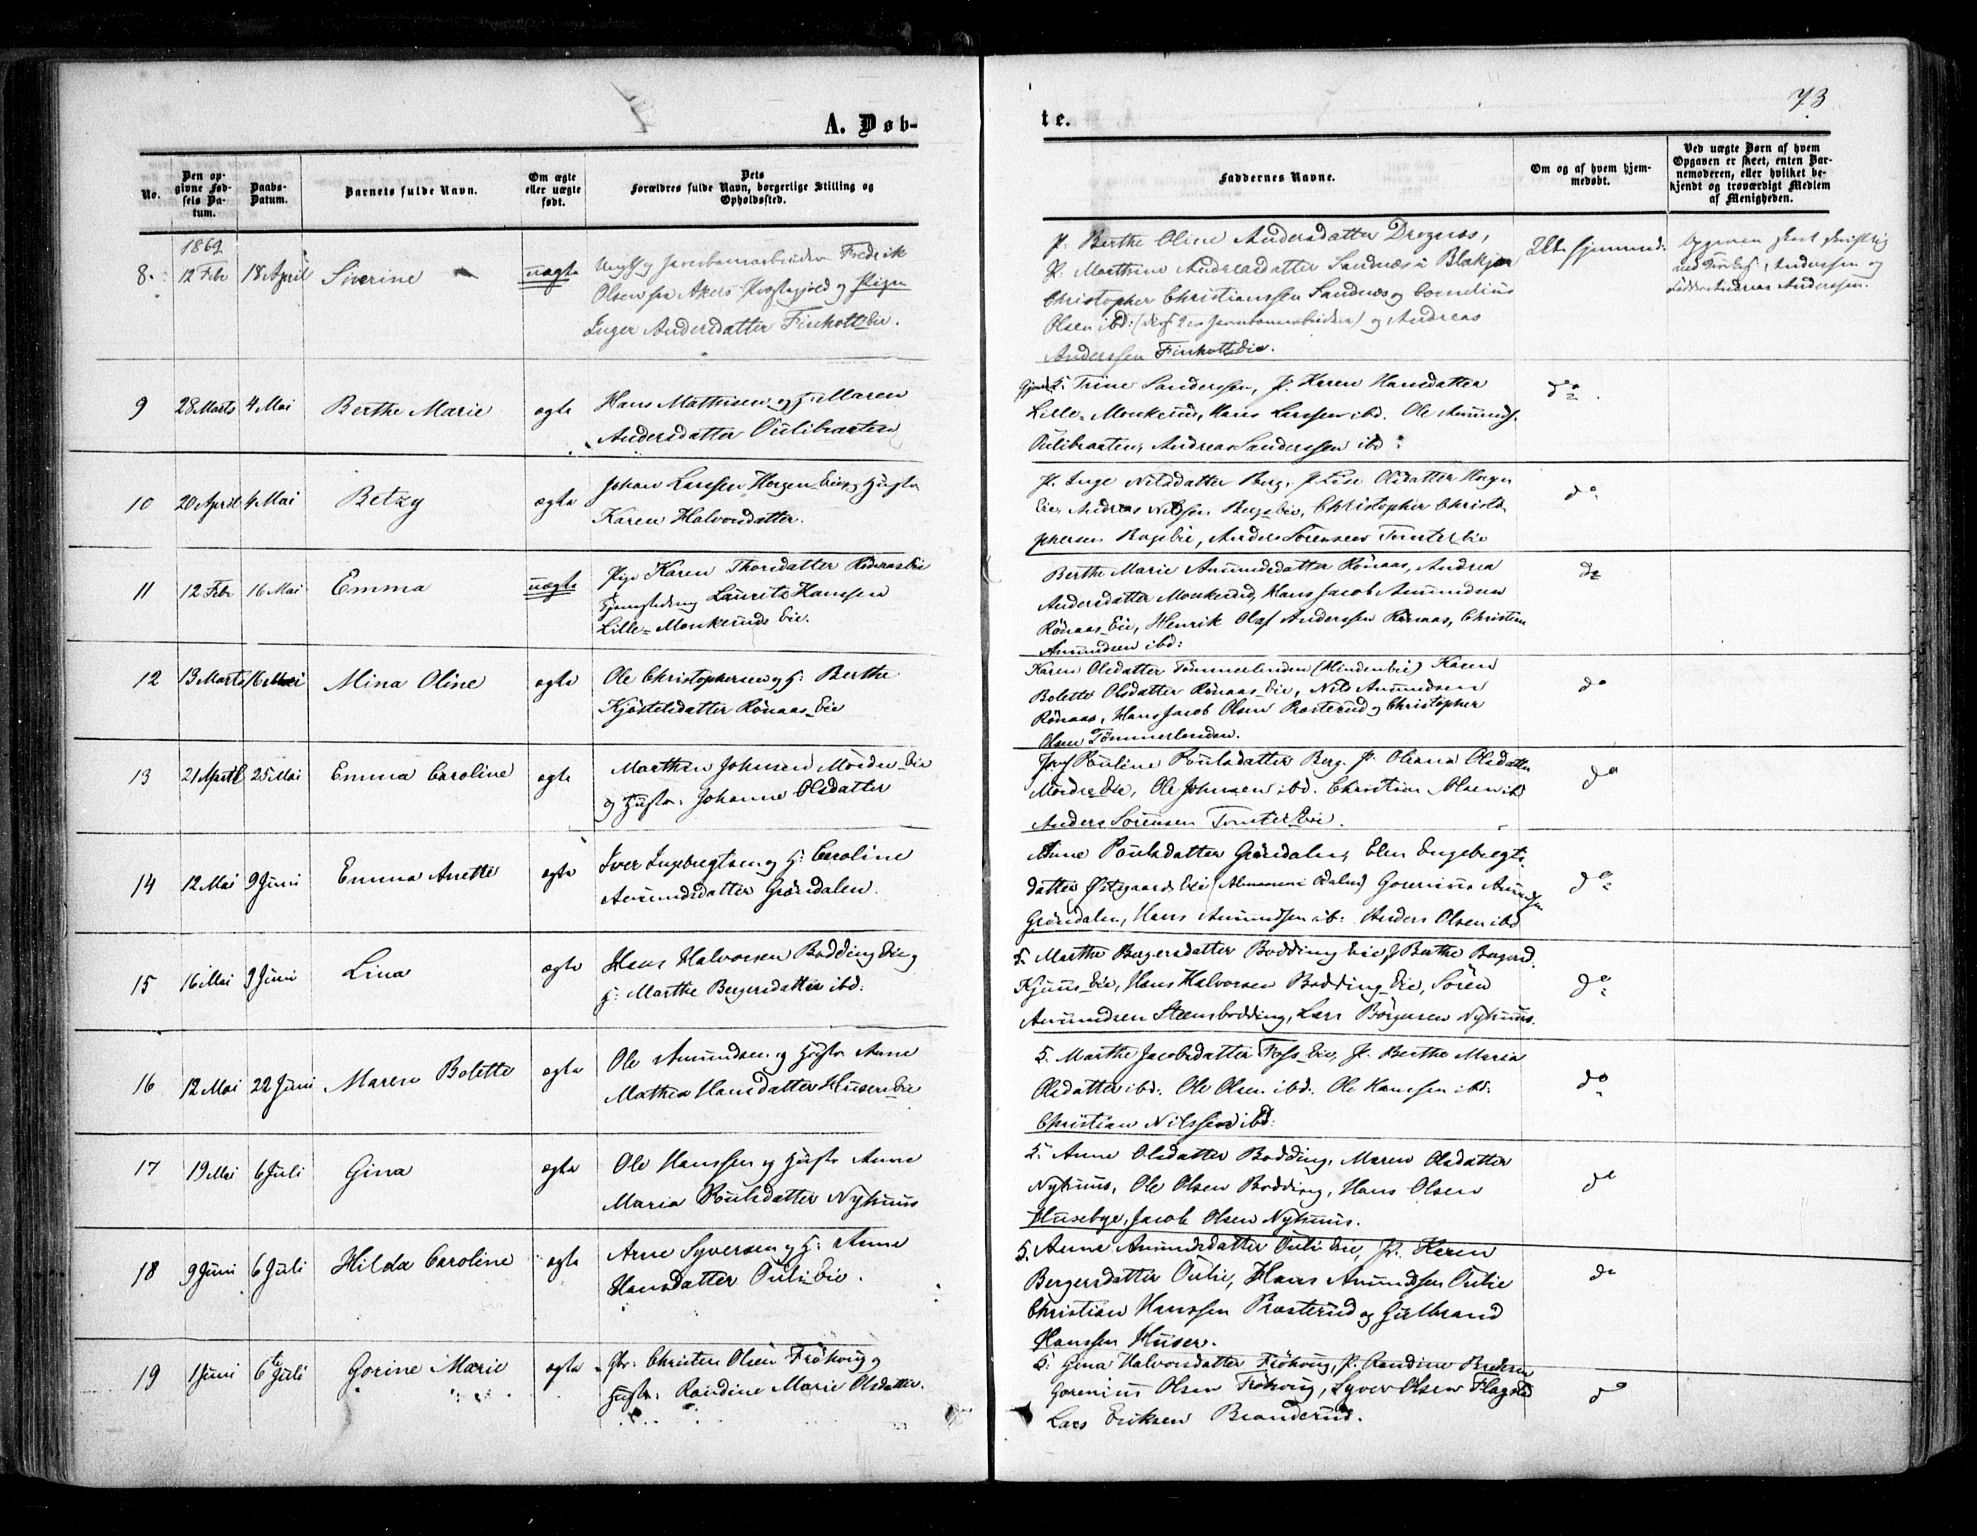 73
A. Døb-
te.
No.
Den op-
givne Fød-
sels Da-
tum.
Daabs-
Datum.
Barnets fulde Navn.
Om ægte
eller uægte
født.
Dets
Forældres fulde Navn, borgerlige Stilling og
Opholdssted.
Faddernes Navne.
Om og af hvem hjem-
medøbt.
Ved uægte Børn af hvem
Opgaven er skeet, enten Bar-
nemoderen, eller hvilket be-
kjendt og troværdigt Medlem
af Menigheden.
1869
8. 12 Febr 18 April Siverine uægte
Fredrik
Olsen fra Akers Præstegjeld og Pigen
Inger Andersdatter Finholt Eie.
P. Berthe Oline Andersdatter Dragnæs,
P. Marthine Andreasdatter Sandnæs i Blakjer
Christopher Christianssen Sandnæs og Cornelius
Olsen ibd: og Andreas
Anderssen Finholt Eie.
9 28 Marts 4 Mai Berthe Marie ægte
Hans Mathisen og H: Maren
Andersdatter Oulibraaten
Trine Sanderssen, P. Karen Hansdatter
Lille-Monkerud, Hans Larssen ibd. Ole Amunds.
Oulibraaten, Andreas Sanderssen ibd:
do
10 20 April 4 Mai Betzy ægte
Johan Larssen Horgen Eie og Hustru
Karen Halvorsdatter.
P. Inge Nilsdatter Berg, P. Lise Olsdatter Horgen
Eie, Andreas Nilssen Bergs Eie, Christopher Christo
phersen Bags Eie, Anders Sørensen Tomter Eie
do
11 12 Febr 16 Mai Emma uægte
Pige Karen Thorsdatter Rønaas Eie
Laurits Hansen
Lille-Monkeruds Eie.
Berthe Marie Amundsdatter Rønaas, Andrea
Andersdatter Monkerud, Hans Jacob Amundsen
Rønaas Eie, Henrik Olaf Anderssen Rønaas, Christian
Amundsen ibd:
do
12 13 Marts 16 Mai Mina Oline ægte
Ole Christophersen og H: Berthe
Kjöstelsdatter Rönaas Eie
Karen Olsdatter Tömmerlunden Karen
Bolette Olsdatter Rönaas Eie, Nils Amundsen
Rönaas, Hans Jacob Olsen Prosterud og Christopher
Olsen Tömmerlunden.
do
13 21 April 25 Mai Emma Caroline ægte
Marthin Johnsen Mordre Eie
og Hustru Johanne Olsdatter
Pauline Poulsdatter Berg. P. Oleana Olsdatter
Mordre Eie, Ole Johnsen ibd. Christian Olsen ibd
Anders Sörensen Tomter Eie.
do
14 12 Mai 9 Juni Emma Anette ægte
Iver Ingebregtsen og H: Caroline
Amundsdatter Gröndalen.
Anne Poulsdatter Gröndalen, Elen Engebregts
datter Østgaards Eie Gorenius Amundsen
Gröndalen, Hans Amundsen ib: Anders Olsen ibd
do
15 16 Mai 9 Juni Lina ægte
Hans Halvorsen Bodding Eie og
H: Marthe Bergersdatter ibd:
S. Marthe Bergersdatter Bodding Eie, P. Berthe Bergersd.
Kjuus Eie, Hans Halvorsen Bodding Eie, Sören
Amundsen Steensbodding, Lars Börgersen Nyhuus.
do
16 12 Mai 22 Juni Maren Bolette ægte
Ole Amundsen og Hustr Anne
Mathea Hansdatter Huser Eie
S. Marthe Jacobsdatter Foss Eie, P. Berthe Maria
Olsdatter ibd: Ole Olsen ibd: Ole Hanssen ibd:
Christian Nilssen ibd:
do
17 19 Mai 6 Juli Gina ægte
Ole Hanssen og Hustr Anne
Maria Poulsdatter Nyhuus
S. Anne Olsdatter Bodding, Maren Olsdatter
Nyhuus, Ole Olsen Bodding, Hans Olsen
Husebye, Jacob Olsen Nyhuus.
do
18 9 Juni 6 Juli Hilda Caroline ægte
Arne Syversen og H: Anne
Hansdatter Ouli Eie.
S. Anne Amundsdatter Ouli Eie, P. Karen
Bergersdatter Oulie, Hans Amundsen Oulie
Christian Hanssen Prosterud og Gulbrand
Hanssen Huser.
do
19 1 Juni 6te Juli Gorine Marie ægte
Gbr: Christen Olsen Frökvig og
Hustr: Randine Marie Olsdatter.
S: Gina Halvorsdatter Frökvig, P. Randine
Gorenius Olsen Frökvig, Syver Olsen Flagstad
Lars Eriksen Branderud.
do